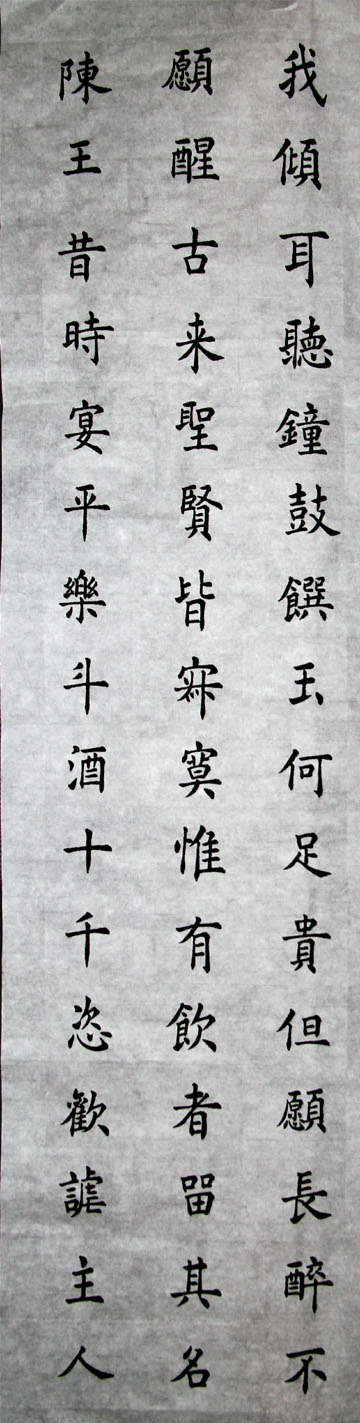 我傾耳聽鐘鼓饌玉何足貴但願長醉不
願醒古来聖賢皆寂寞惟有飲者留其名
陳王昔時宴平樂斗酒十千恣歡謔主人